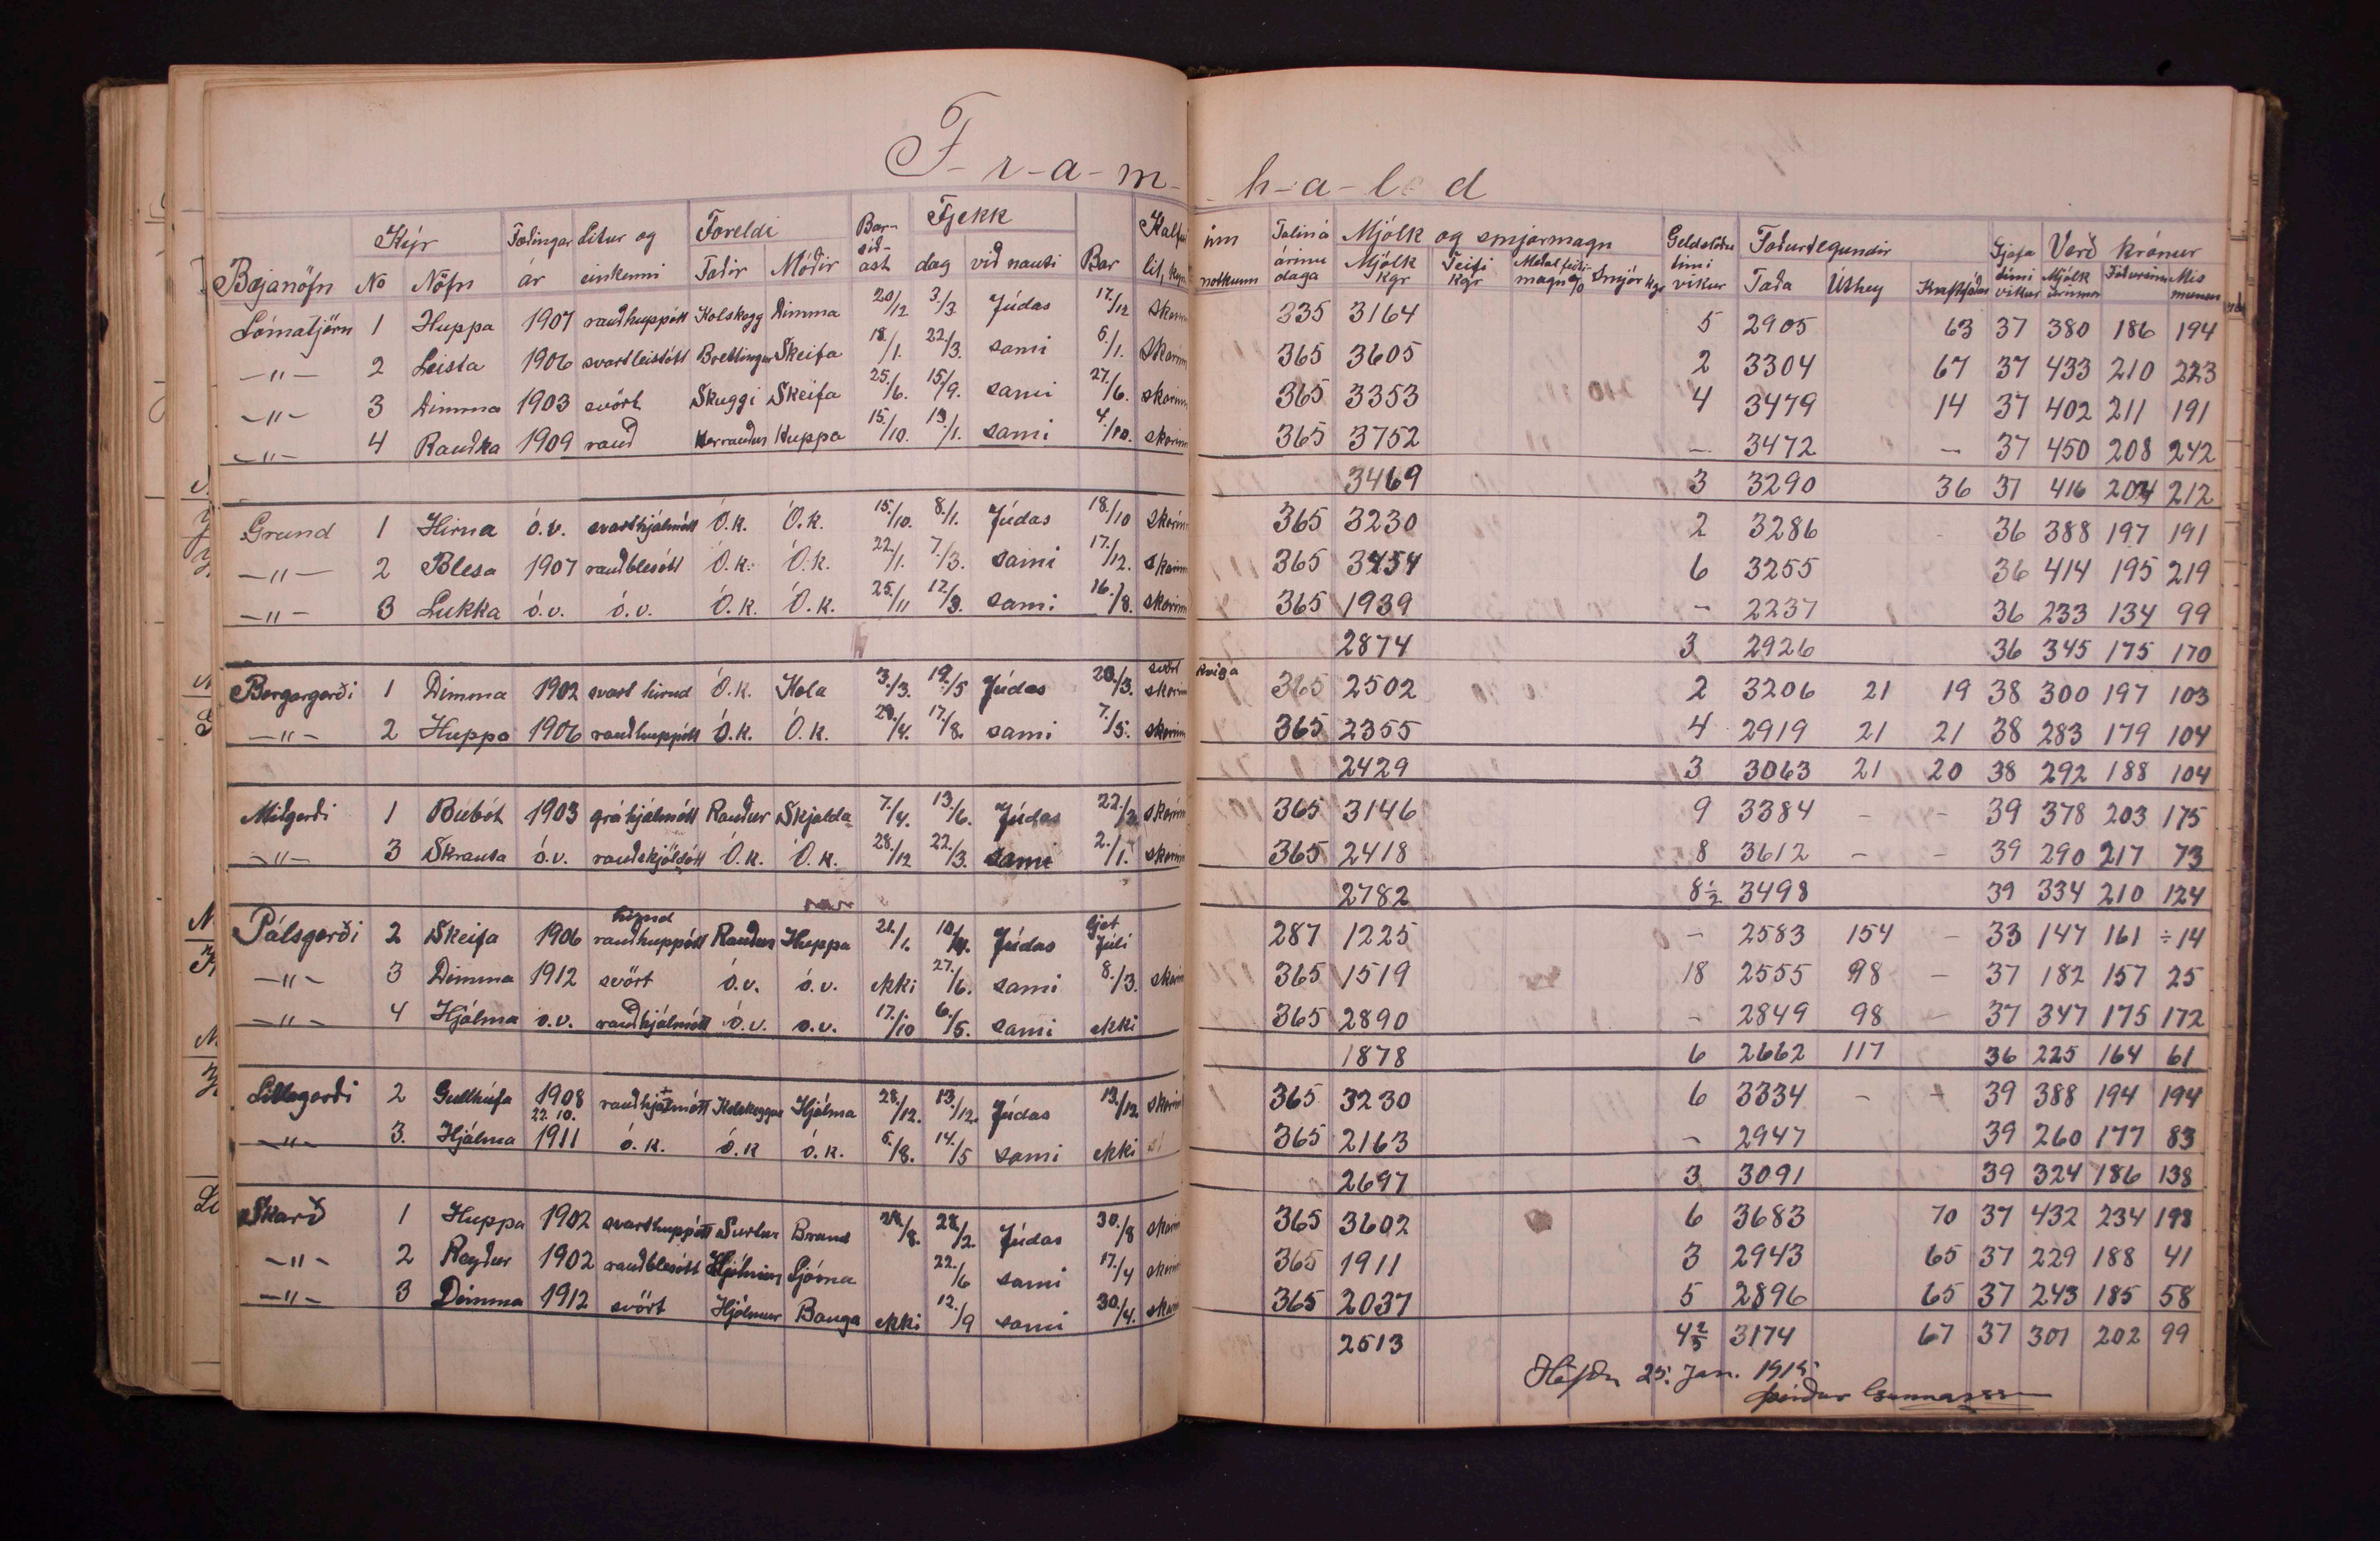 F-r-a-m- h-a-l-d
Kýr Fæðingar Litur og Foreldi Bar- Fjekk Kalfur inn Talin á Mjólk og smjörmagn Geldstöðu Foðurtegundir Gjafa Verð krónur
Bæjanöfn No Nöfn ár einkenni Faðir Móðir síð- ast dag við nauti Bar lit, notkunn árinu daga Mjólk kgr Feiti kgr Meðal feiti- magn % Smjör kgr tími vikur Taða Úthey Kraftfóður tími vikur Mjólk urinnar Fóðursins Mis munur
Lómatjörn 1 Huppa 1907 rauðhuppótt Kolskegg Dimma 20/12 3/3 Júdas 17/12 skorinn 335 3164 5 2905 63 37 380 186 194
—"— 2 Leista 1906 svartleistótt Brettingur Skeifa 18/1. 22/3. sami 6/1. skorinn 365 3605 2 3304 67 37 433 210 223
—"— 3 Dimma 1903 svört Skuggi Skeifa 25/6. 15/9. sami 27/6. skorinn 365 3353 4 3479 14 37 402 211 191
—"— 4 Rauðka 1909 rauð Herrauður Huppa 15/10. 13/1. sami 4/10. skorinn 365 3752 — 3472 — 37 450 208 242
3469 3 3290 36 37 416 204 212
Grund 1 Hirna ó.v. svarthjálmótt Ó.k. Ó.k. 15/10. 8/1. Júdas 18/10 skorinn 365 3230 2 3286 36 388 197 191
—"— 2 Blesa 1907 rauðblesótt Ó.k. Ó.k. 22/1. 7/3. sami 17/12. skorinn 365 3454 6 3255 36 414 195 219
—"— 3 Lukka ó.v. ó.v. Ó.k. Ó.k. 25/11 12/3. sami 16/8. skorinn 365 1939 — 2237 36 233 134 99
2874 3 2926 36 345 175 170
svört kvíga
Borgargerði 1 Dimma 1902 svart hirnd Ó.k. Kola 3/3. 19/5 Júdas 20/3. skorin 365 2502 2 3206 21 19 38 300 197 103
—"— 2 Huppa 1906 rauðhuppótt Ó.k. Ó.k. 20/4. 17/8. sami 7/5. skorinn 365 2355 4 2919 21 21 38 283 179 104
2429 3 3063 21 20 38 292 188 104
Miðgerði 1 Búbót 1903 gráhjálmótt Rauður Skjalda 7/4. 13/6. Júdas 22/3. skorinn 365 3146 9 3384 — — 39 378 203 175
—"— 3 Skrauta ó.v. rauðskjöldótt Ó.k. Ó.k. 28/12 22/3. sami 2/1. skorinn 365 2418 8 3612 — — 39 290 217 73
2782 8½ 3498 39 334 210 124
hirnd
Pálsgerði 2 Skeifa 1906 rauðhuppótt Rauður Huppa 21/1. Júdas Júlí 287 1225 — 2583 154 — 33 147 161 ÷14
—"— 3 Dimma 1912 svört ó.v. ó.v. ekki 27/6. sami 8/3. skorinn 365 1519 18 2555 98 — 37 182 157 25
—"— 4 Hjálma ó.v. rauðhjálmótt ó.v. ó.v. 17/10 6/5. sami ekki 365 2890 — 2849 98 — 37 347 175 172
1878 6 2662 117 36 225 164 61
Litlagerði 2 Gullhúfa 1908 rauðhjálmótt Kolskeggur Hjálma 28/12. 13/12. Júdas 13/12. skorinn 365 3230 6 3334 — 39 388 194 194
—"— 3. Hjálma 22 10. 1911 ó.k. ó.k ó.k. 5/8. 14/5 sami ekki 365 2163 — 2947 39 260 177 83
2697 3 3091 39 324 186 138
Skarð 1 Huppa 1902 svarthuppótt Surtur Brand 28/2. Júdas 30/8 skorinn 365 3602 6 3683 70 37 432 234 198
—"— 2 Reyður 1902 rauðblesótt Hjálmur Ljóma 22/6 sami 17/4 skorinn 365 1911 3 2943 65 37 229 188 41
—"— 3 Dimma 1912 svört Hjálmur Bauga ekki 12/9 sami 30/4. skorinn 365 2037 5 2896 65 37 243 185 58
2513 4⅔ 3174 67 37 301 202 99
Höfða 25. Jan. 1915
Þórður Gunnarsson